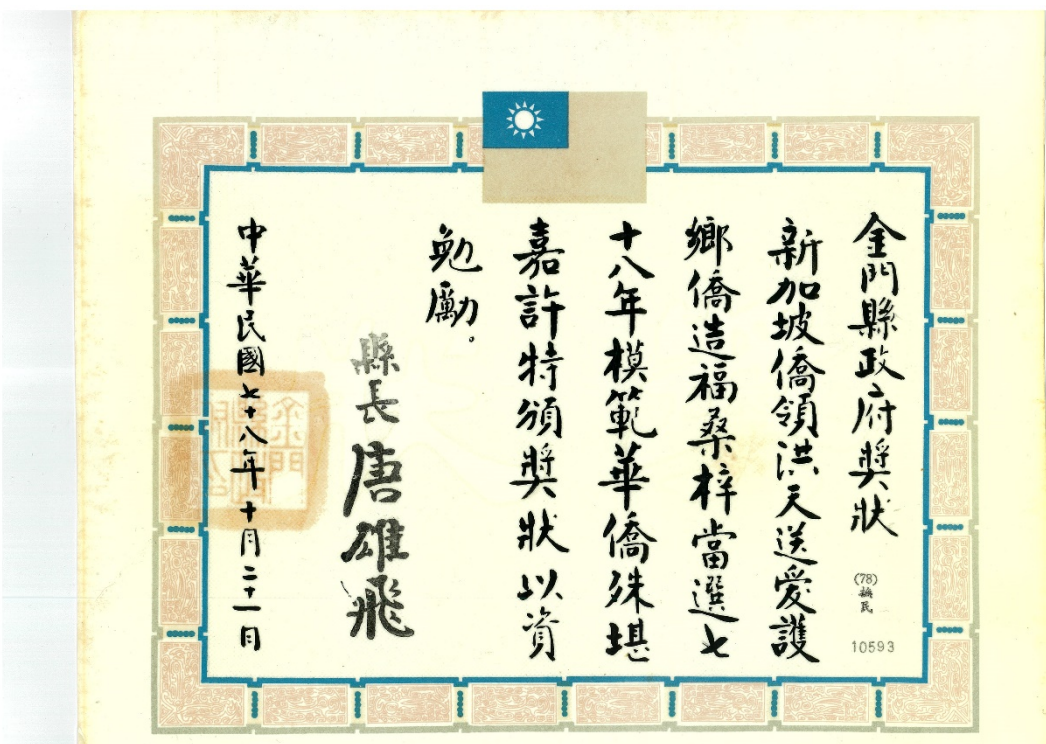 金門縣政府獎狀
(78)
民
10593
新加坡僑領洪天送愛護
鄉僑造福桑梓當選七
十八年模範華僑殊堪
嘉許特頒獎狀以資
勉勵。
縣長唐雄飛
中華民國七十八年十月二十一日